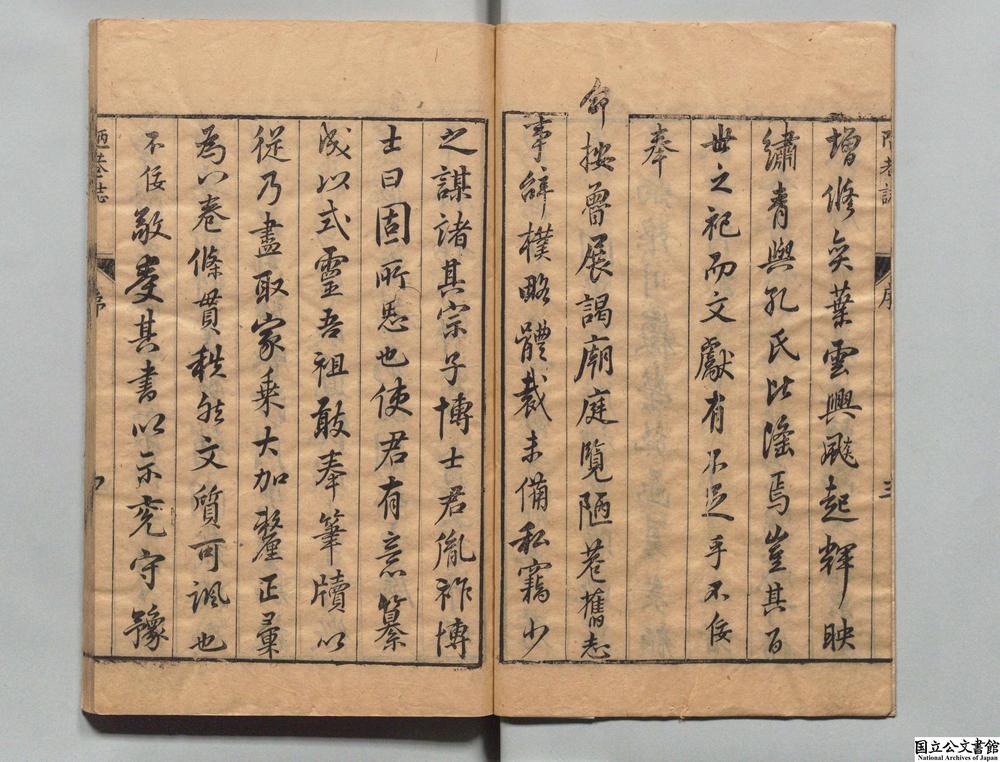 陋巷誌
序
三
增修奕葉雲興飈起輝映
繡青與孔氏比隆焉豈其百
世之祀而文獻有不足乎不佞
奉
命按魯展謁廟庭覽陋巷舊志
事辭樸略體裁未備私竊少
之謀諸其宗子博士君胤祚博
士曰固所思也使君有意纂
成以式靈吾祖敢奉筆牘以
從乃盡取家乘大加釐正彙
為八卷條貫秩然文質可諷也
不佞敬受其書以示兗守豫
陋巷誌
序
国立公文書館
National Archives of Japan